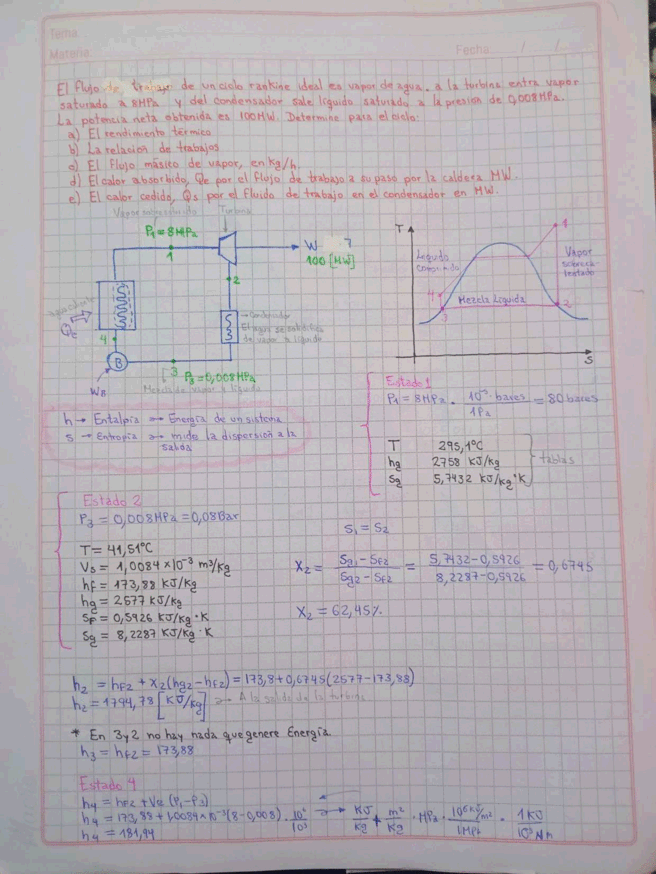 Tema
Materia
Fecha / /
El flujo de trabajo de un ciclo rankine ideal es vapor de agua. a la turbina entra vapor
saturado a 8MPa y del condensador sale líquido saturado a la presión de 0,008MPa.
La potencia neta obtenida es 100MW. Determine para el ciclo:
a) El rendimiento térmico
b) La relacion de trabajos
c) El Flujo másico de vapor, en Kg/h.
d) El calor absorbido, Qe por el flujo de trabajo a su paso por la caldera MW.
e) El calor cedido, Qs por el fluido de trabajo en el condensador en MW.
Turbina
P1 = 8MPa
1
W
100 [MW]
2
Condensador
4
Qe
B
WB
3
P3 = 0,008MPa
Mezcla de vapor y líquido
T
1
Líquido
Vapor
4
Mezcla Líquida
3
2
S
h → Entalpía → Energía de un sistema
s → Entropía → mide la dispersión a la
salida
Estado 1
P1 = 8MPa · 10⁻⁵ bares / 1Pa = 80 bares
T 295,1°C
hg 2758 KJ/kg
sg 5,7432 KJ/kg·K
tablas
Estado 2
P3 = 0,008MPa = 0,08Bar
T = 41,51°C
Vs = 1,0084 x10⁻³ m³/kg
hf = 173,88 KJ/kg
hg = 2577 KJ/kg
sf = 0,5926 KJ/kg·K
sg = 8,2287 KJ/kg·K
s1 = s2
X2 = (sg1 - sf2) / (sg2 - sf2) = (5,7432 - 0,5926) / (8,2287 - 0,5926) = 0,6745
X2 = 62,45%
h2 = hf2 + x2(hg2 - hf2) = 173,8 + 0,6745(2577 - 173,88)
h2 = 1794,78 [KJ/kg] → A la salida de la turbina
* En 3y2 no hay nada que genere Energía.
h3 = hf2 = 173,88
Estado 4
h4 = hf2 + (P1 - P3)
h4 = 173,88 + 1,0084 x 10⁻³ (8 - 0,008) · 10⁶ / 10³ → KJ/kg + m²/kg · MPa ·
h4 = 181,94